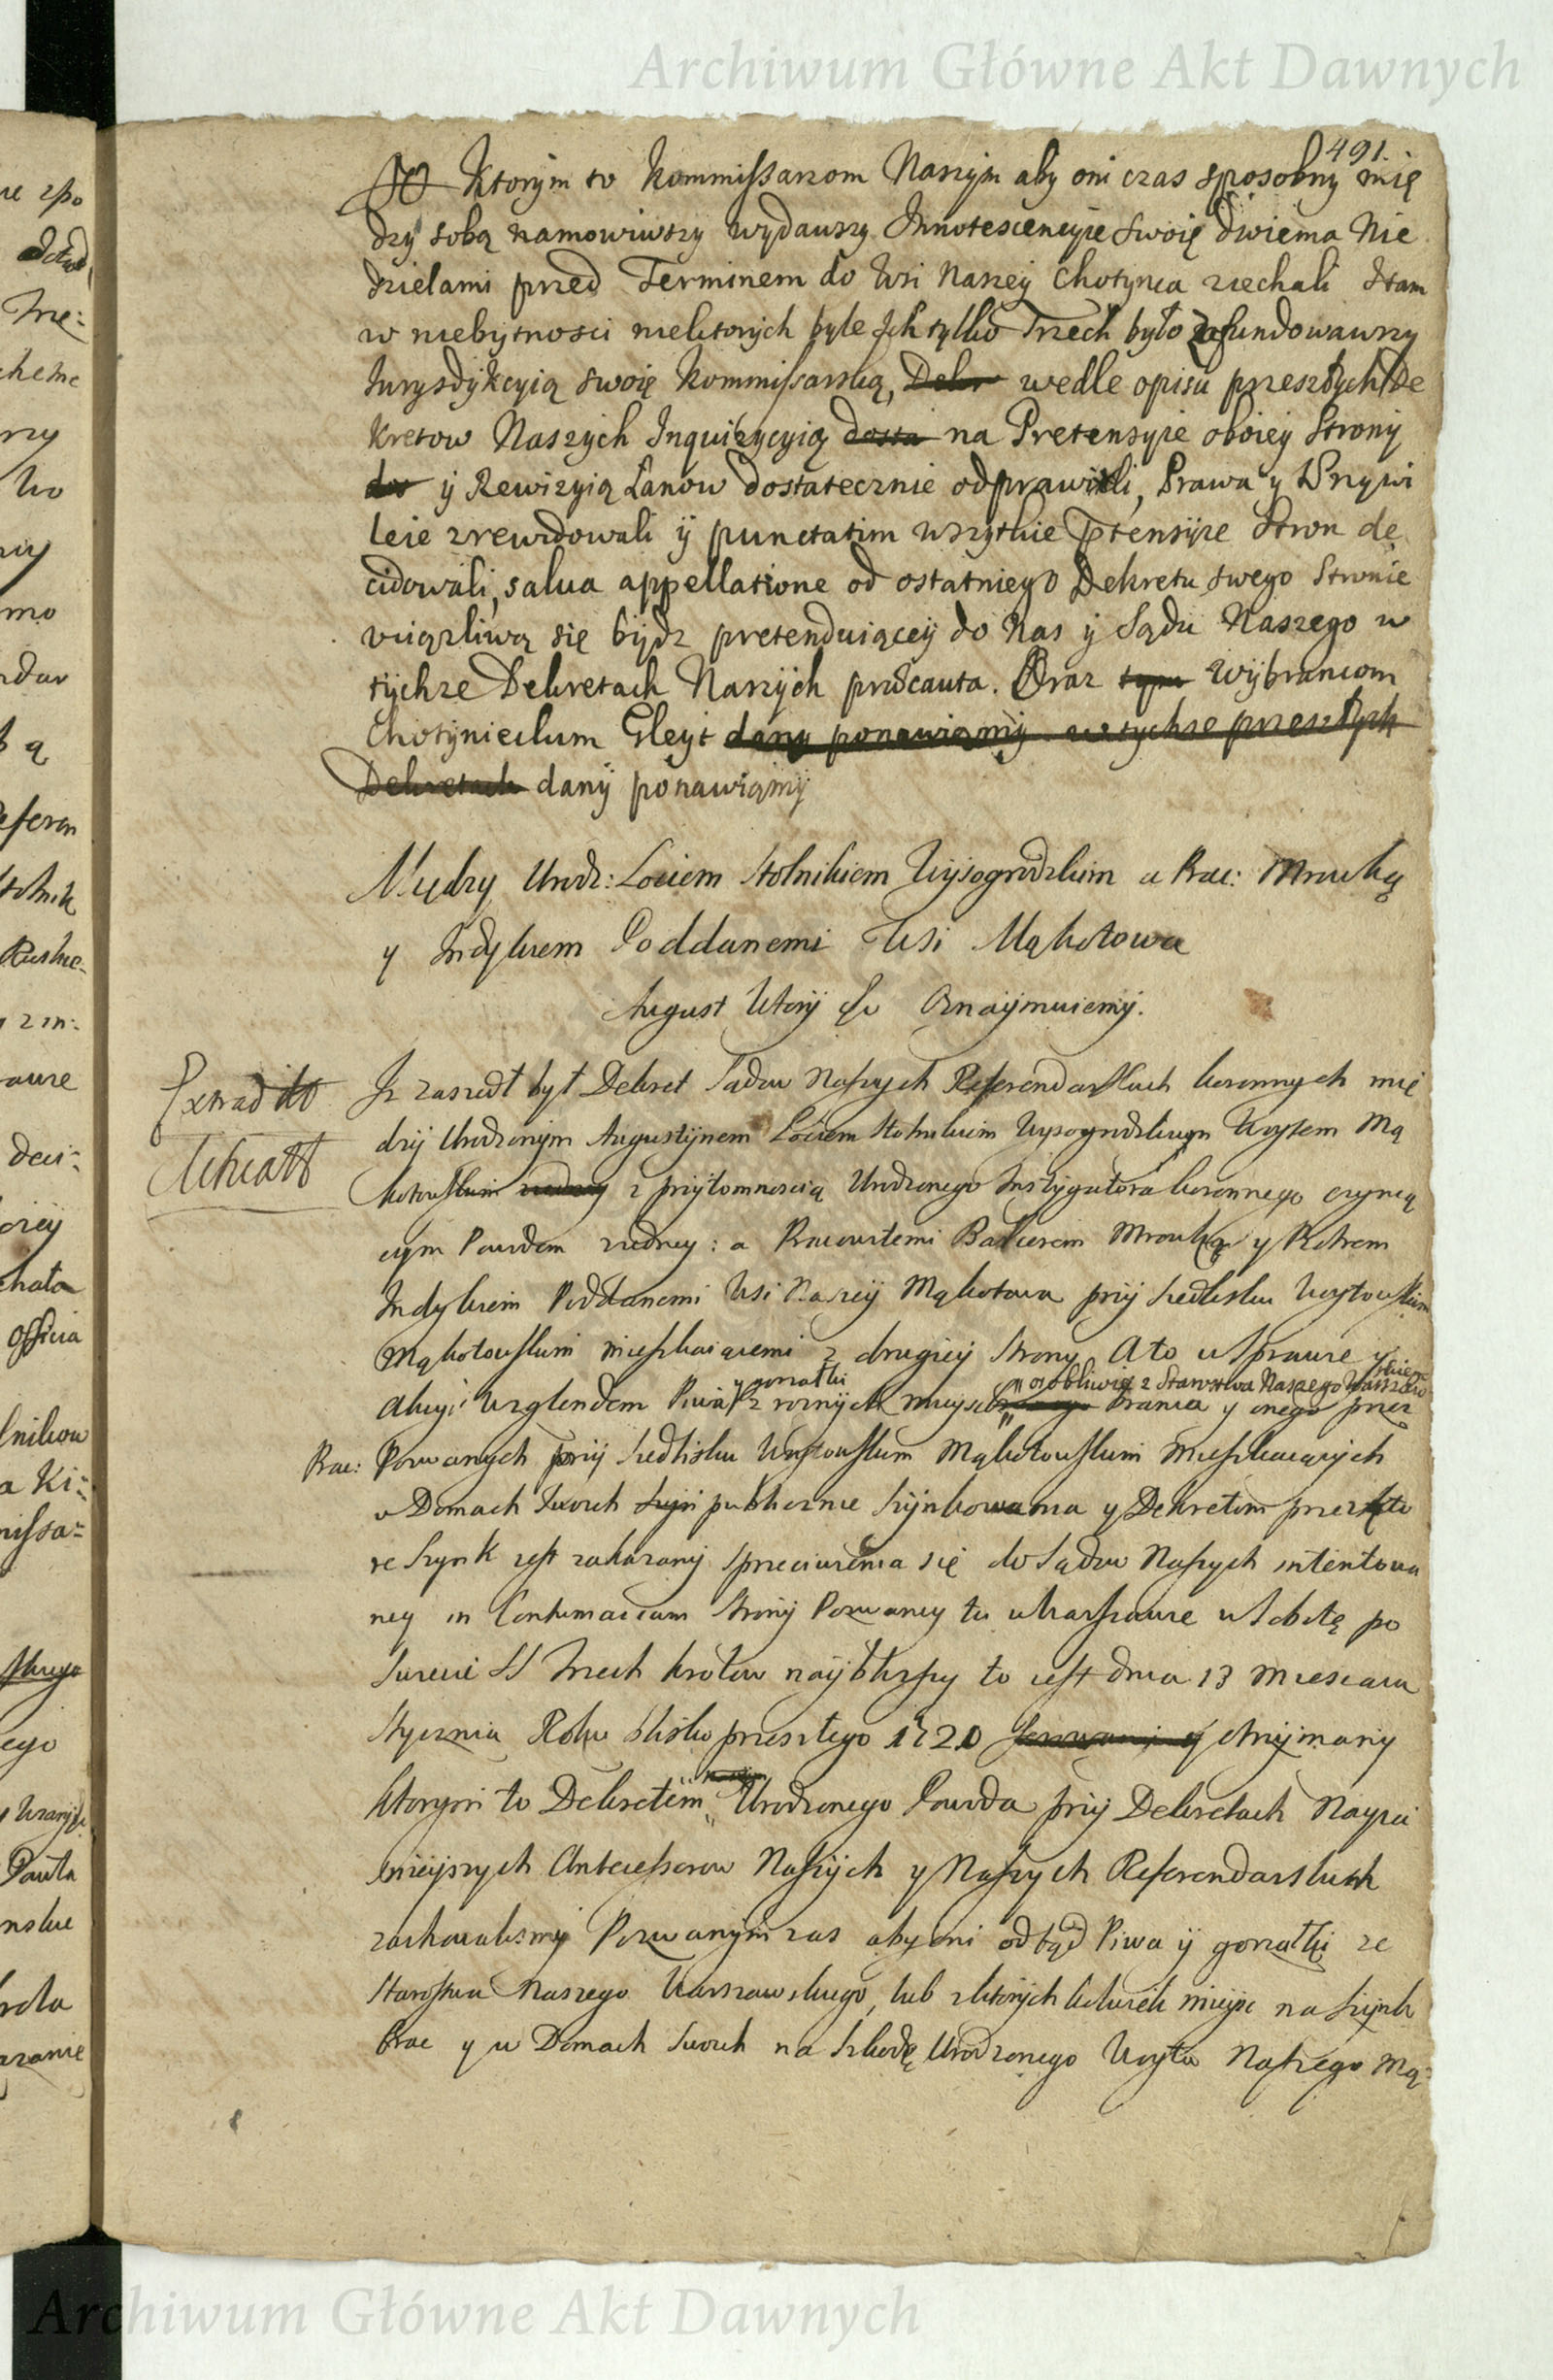 Archiwum Główne Akt Dawnych
491.
Ktorym to Kommissarzom Naszym aby oni czas sposobny mię
dzy sobą namowiwszy wydawszy Innotescencyie swoię dwiema Nie
dzielami przed Terminem do Wsi Naszey Chotynca ziechali Itam
w niebytnosci niektorych byle Ich tylko Trzech było zafundowawszy
Iurysdykcyią swoię Kommissarską, Dekr wedle opisu przeszłych De
kretow Naszych Inquizycyią dosta na Pretensyie oboiey Strony
do y Rewizyią Łanow dostatecznie odprawili, Prawa y Przywi
leie zrewidowali y punctatim wszytkie Ptensyie Stron de
cidowali, salua appellatione od ostatniego Dekretu swego Stronie
uciązliwą się bydz pretenduiącey do Nas y Sądu Naszego w
tychze Dekretach Naszych præcauta. Oraz tym Wybrancom
Chotynieckim Gleyt dany ponawiamy w tychze przeszłych
Dekretach dany ponawiamy
Między Urodz: Lociem Stolnikiem Wysogrodzkim a Prac: Mrowką
y Indykiem Poddanemi Wsi Mąkotowa
August Wtory &c Oznaymuiemy.
Extraditt
Iz zaszedł był Dekret Sądow Naszych Referendarskich koronnych mię
dzy Urodzonym Augustynem Lociem Stolnikiem Wysogrodzkiem Woytem Mą
kotowskim z przytomnoscią Urodzonego Instygatora koronnego czynią
cym Powodem z iedney: a Pracowitemi Mrowką y Piotrem
Indykiem Poddanemi Wsi Naszey Mąkotowa przy Siedlisku Woytowskim
Mąkotowskim mieszkaiącemi z drugiey Strony A to w Sprawie y
y gorzałki
osobliwie z Starostwa Naszego Warszaw
skiego
Akcyi Względem Piwa z roznych mieysc brania y onego przez
Prac: Pozwanych przy Siedlisku Woytowskim Mąkotowskim Mieszkaiących
w Domach Swoich publicznie Szynkowania y Dekretom przez kto
re Szynk iest zakazany sprzeciwienia się do Sądow Naszych intentowa
ney in Contumaciam Strony Pozwaney tu w Warszawie w Sobotę po
Swięcie SS Trzech Krolow nayblizszy to iest dnia 13 Miesiąca
Stycznia Roku blisko przeszłego 1720 otrzymany
Ktorym to Dekretem Urodzonego Powoda przy Dekretach Nayia
snieyszych Antecessorow Naszych y Naszych Referendarskich
zachowalismy Pozwanym zas aby oni odtąd Piwa y gorzałki ze
Starostwa Naszego Warszawskiego, lub z ktorych kolwiek mieysc na Szynk
brac y w Domach Swoich na Szkodę Urodzonego Woyta Naszego Mą:
Archiwum Główne Akt Dawnych